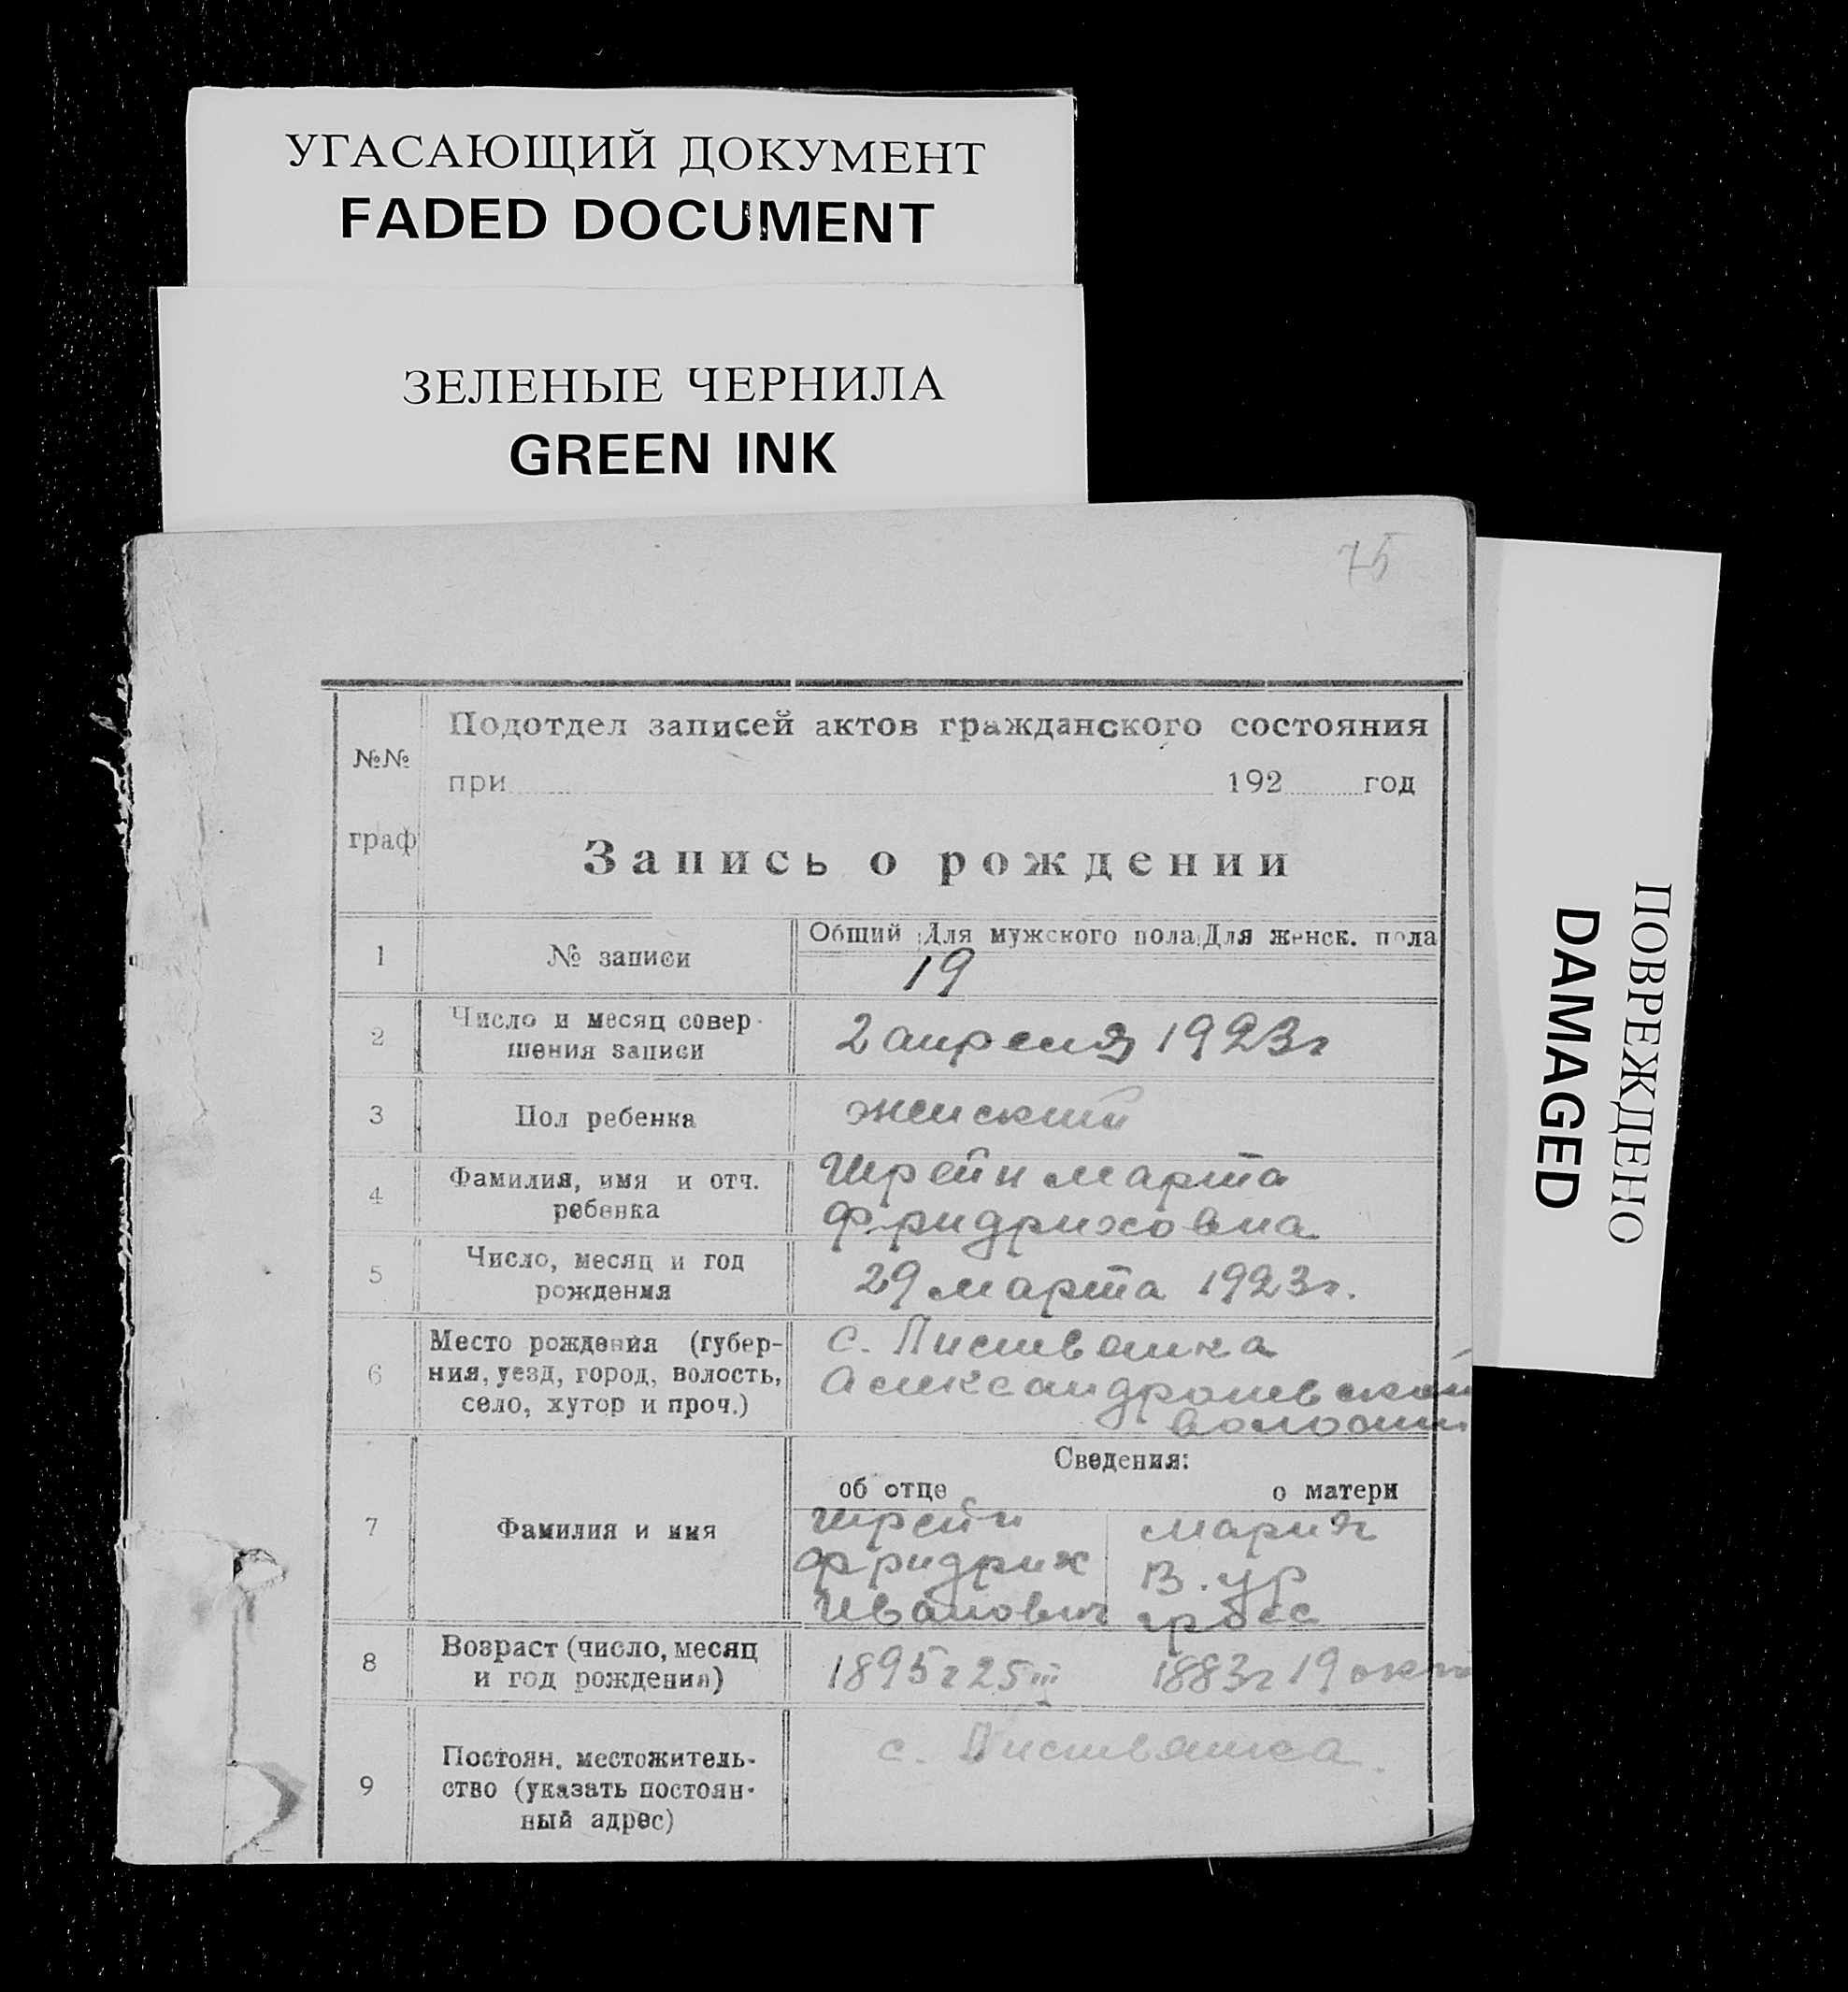 УГАСАЮЩИЙ ДОКУМЕНТ
FADED DOCUMENT
ЗЕЛЕНЫЕ ЧЕРНИЛА
GREEN INK
75
ПОВРЕЖДЕНО
DAMAGED
№№
граф
Подотдел записей актов гражданского состояния
при 192 год
Запись о рождении
1 № записи Общий Для мужского пола Для женск. пола
19
2 Число и месяц совер-
шения записи
2 апреля 1923 г
3 Пол ребенка женский
4 Фамилия, имя и отч.
ребенка
Шрейн Марта
Фридриховна
5 Число, месяц и год
рождения
29 марта 1923 г.
6 Место рождения (губер-
ния, уезд, город, волость,
село, хутор и проч.)
с. Листвянка
волости
7 Фамилия и имя
Сведения:
об отце о матери
Шрейн
Фридрих
Иванович
Мария
В. ур
гросс
8 Возраст (число, месяц
и год рождения)
1895 г 25 III 1883 г 19 окт
9 Постоян. местожитель-
ство (указать постоян-
ный адрес)
с. Листвянка